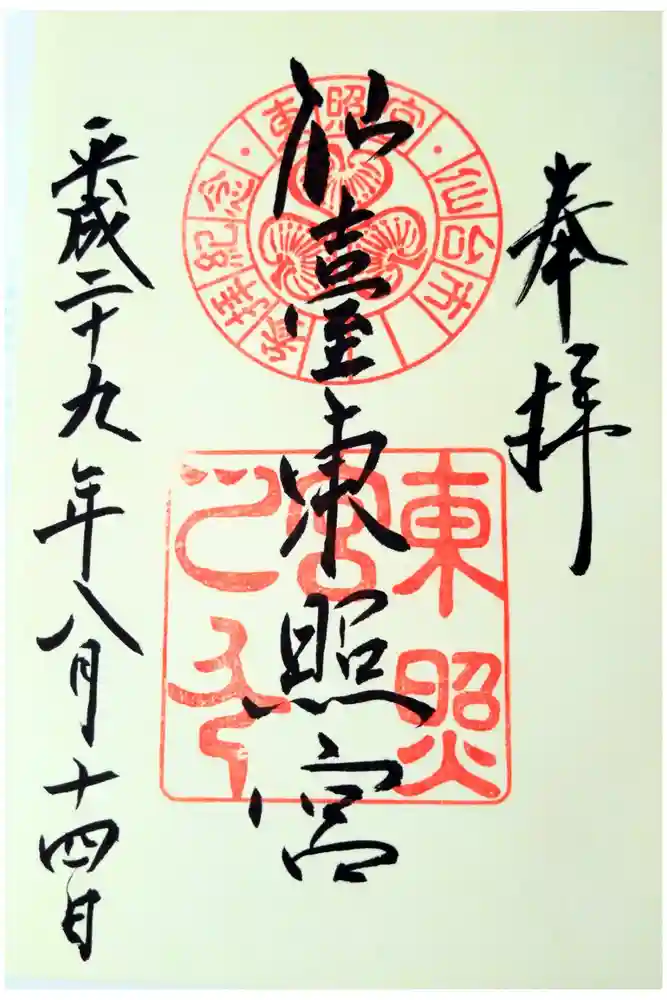 奉拝
仙臺東照宮
平成二十九年八月十四日
東照宮
仙台市
参拝紀念
東照
宮
之印